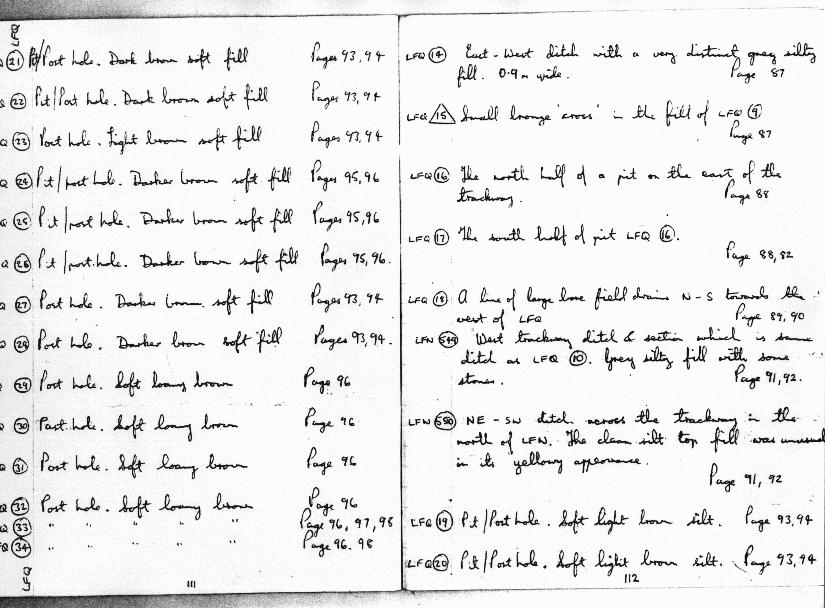 LFQ
(21) Pit/Post hole. Dark brown soft fill Pages 93,94
Q (22) Pit/Post hole. Dark brown soft fill Pages 93,94
Q (23) Post hole. Light brown soft fill Pages 93,94
Q (24) Pit/post hole. Darker brown soft fill Pages 95,96
(25) Pit/post hole. Darker brown soft fill Pages 95,96
Q (26) Pit/post hole. Darker brown soft fill Pages 95,96.
(27) Post hole. Darker brown soft fill Pages 93,94
(28) Post hole. Darker brown soft fill Pages 93,94.
(29) Post hole. Soft loamy brown Page 96
(30) Post hole. Soft loamy brown Page 96
(31) Post hole. Soft loamy brown Page 96
Q (32) Post hole. Soft loamy brown Page 96
Q (33) " " " " Page 96, 97, 98
FQ (34) " " " " Page 96. 98
LFQ
111
LFQ (14) East-West ditch with a very distinct grey silty
fill. 0.9m wide. Page 87
LFQ (15) Small bronze 'cross' in the fill of LFQ (9)
Page 87
LFQ (16) The north half of a pit on the east of the
trackway. Page 88
LFQ (17) The south half of pit LFQ (16).
Page 88,82
LFQ (18) A line of large lose field drains N-S towards the
west of LFQ Page 89,90
LFN (549) West trackway ditch & section which is same
ditch as LFQ (10). Grey silty fill with some
stones. Page 91,92.
LFN (550) NE-SW ditch across the trackway in the
north of LFN. The clean silt top fill was unusual
in its yellowy appearance.
Page 91, 92
LFQ (19) Pit/Post hole. Soft light brown silt. Page 93,94
LFQ (20) Pit/Post hole. Soft light brown silt. Page 93,94
112